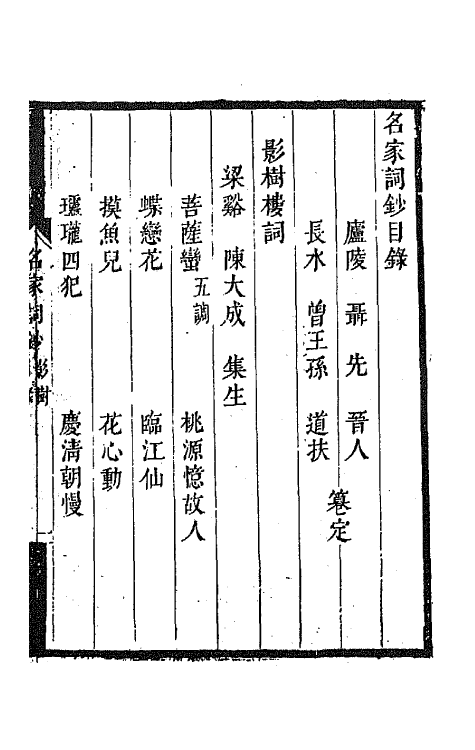 名家詞鈔目錄
廬陵 聶先 晉人
長水 曾王孫 道扶
篹定
影樹樓詞
梁谿 陳大成 集生
菩薩蠻 五調 桃源憶故人
蝶戀花 臨江仙
摸魚兒 花心動
瓏四犯 慶清朝慢
名家詞鈔 影樹